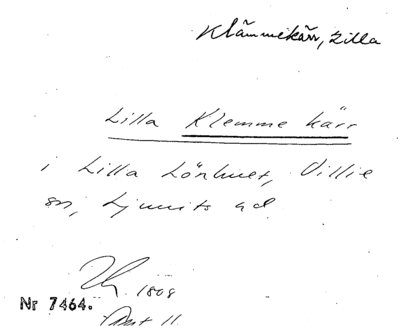 Klämmekärr, Lilla
Lilla Klemme kärr
i Lilla Lönhult, Villie
sn, Ljunits hd.
1808
Nr 7464.
Akt 11.